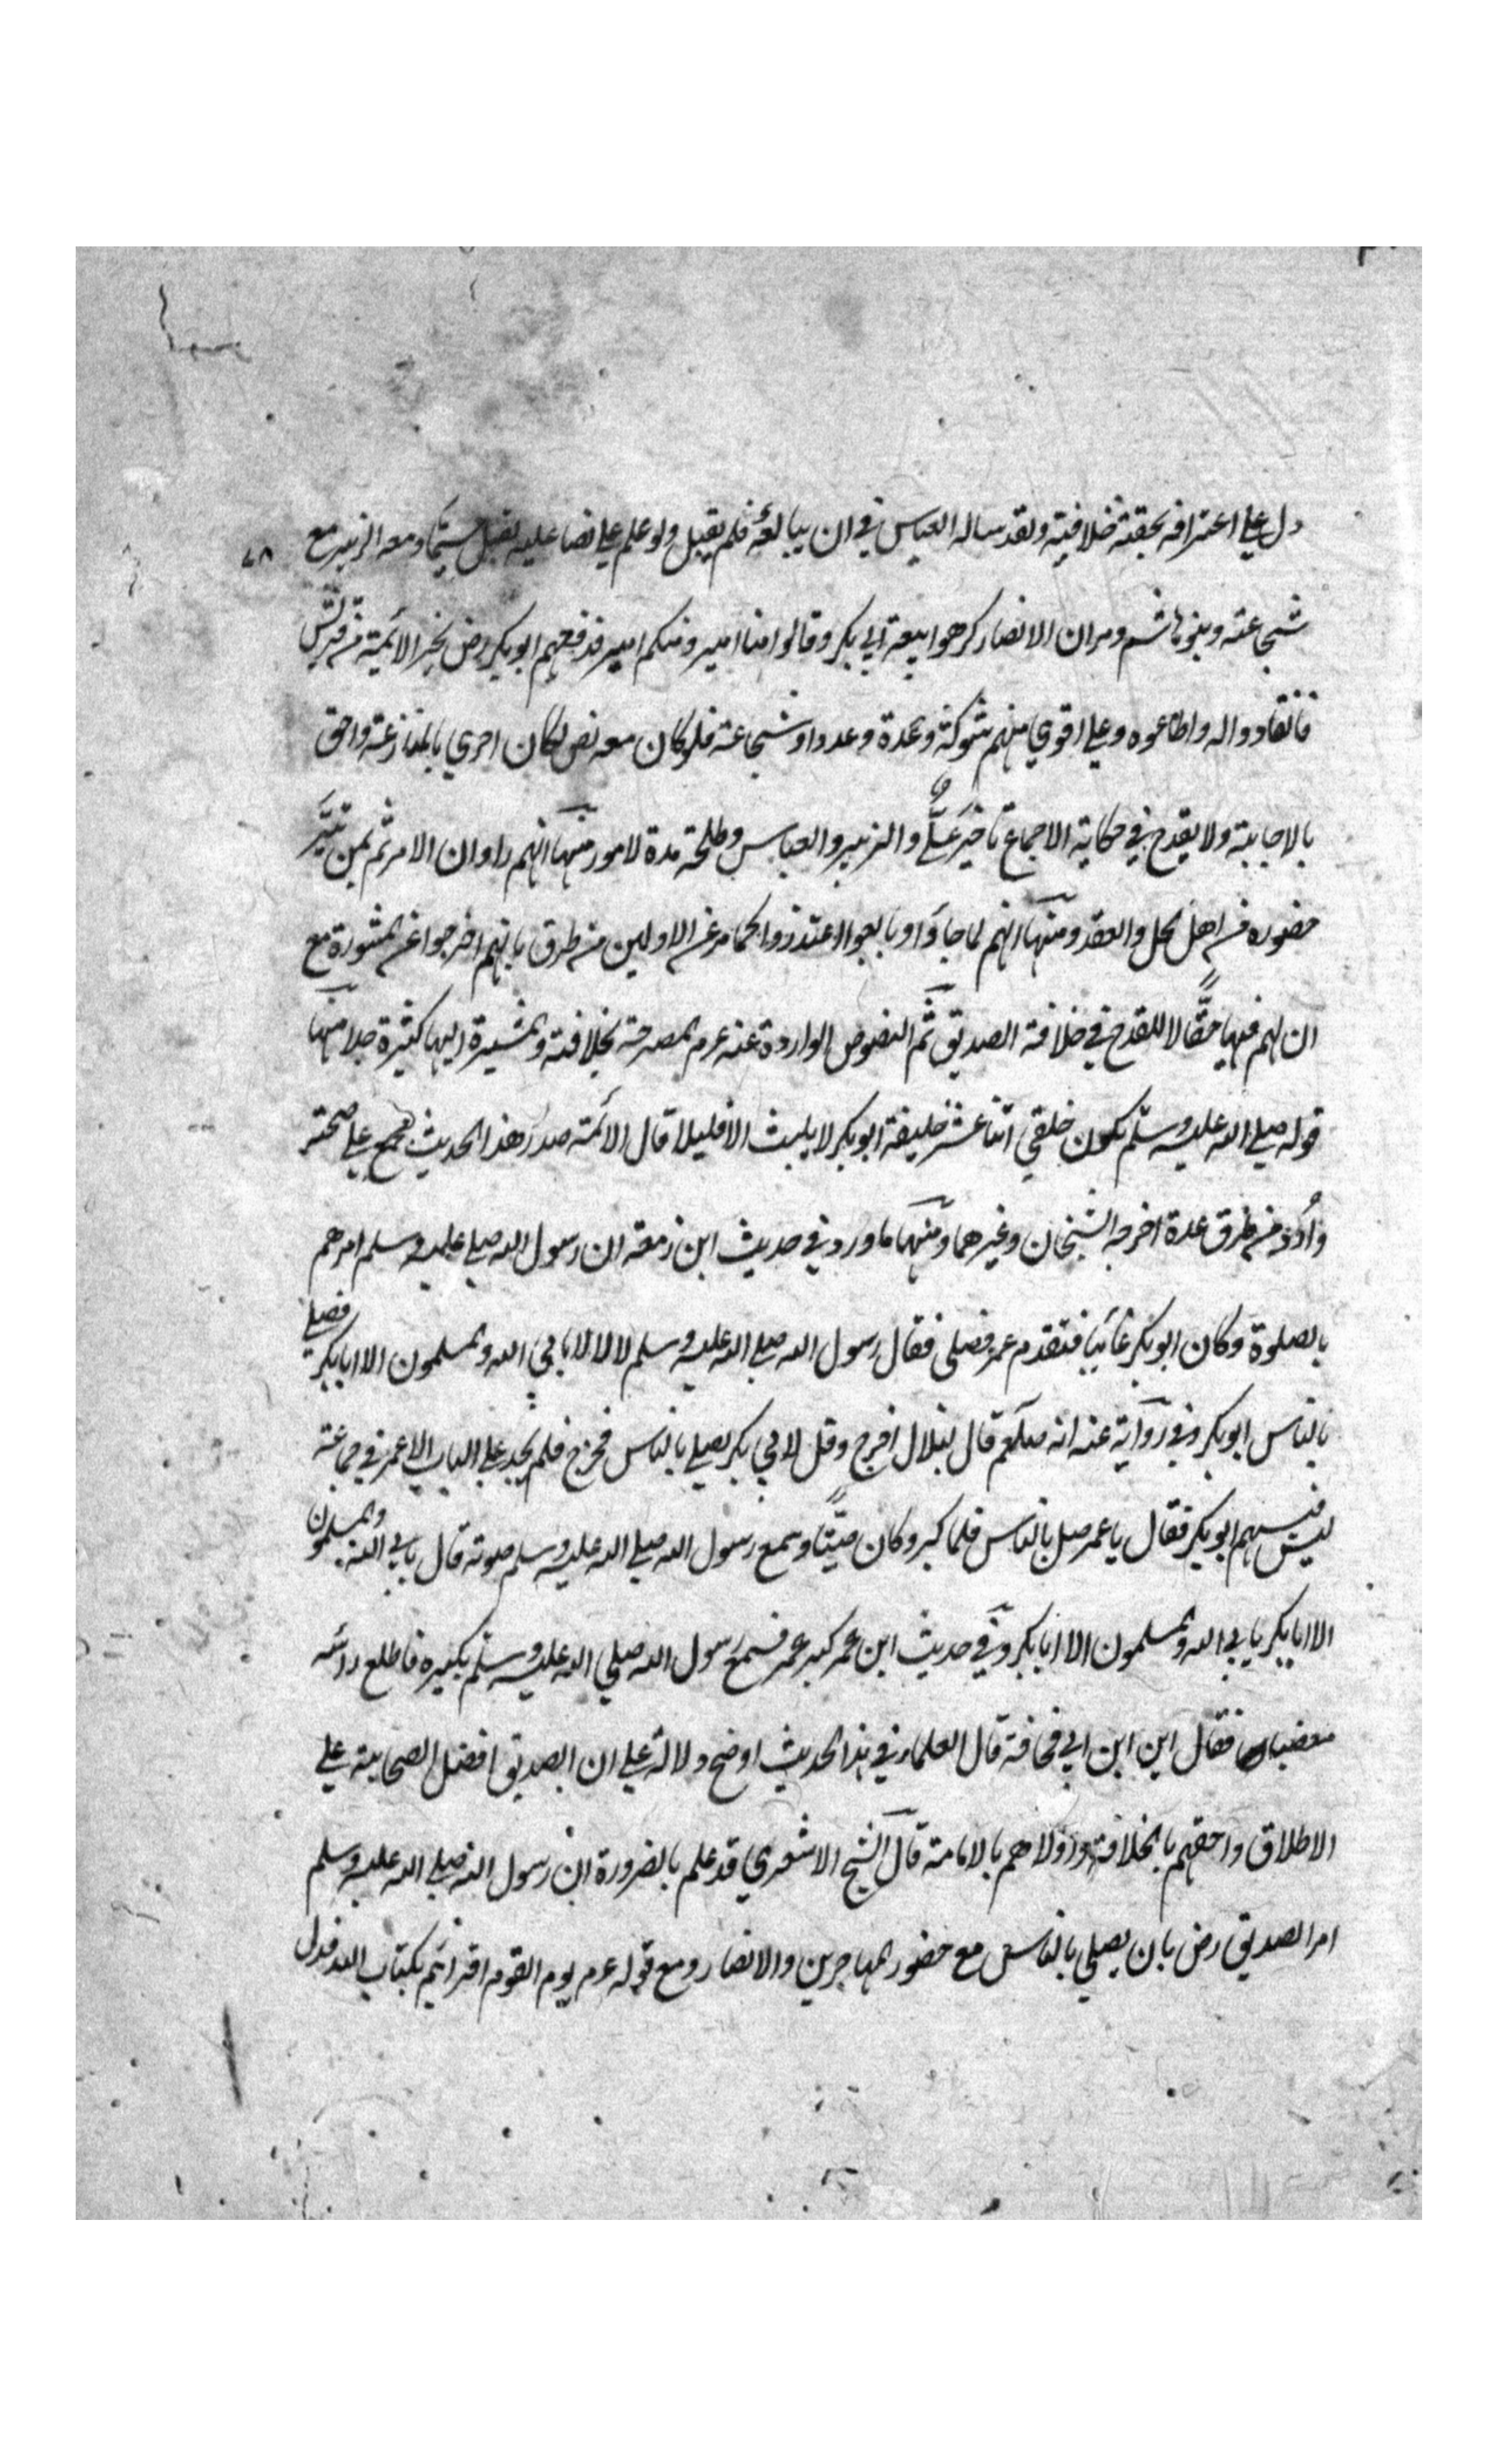 دل علي اعترافه بحقية خلافته ولقد ساله العباس في ان يبايعه فلم يقبل ولو علم علي نصا عليه لقبل سيما ومعه الزبير مع
٧٨
شجاعته وبنو هاشم ومر ان الانصار كرهوا بيعة ابي بكر وقالوا منا امير ومنكم امير فدفعهم ابو بكر رض بخبر الائمة من قريش
فانقادوا له واطاعوه وعلي اقوي منهم شوكة وعدة وعددا وشجاعة فلو كان معه نص لكان احري بالمنازعة واحق
بالاجابة ولا يقدح في حكاية الاجماع تاخر علي والزبير والعباس وطلحة مدة لامور منها انهم راوا ان الامر تم بمن تيسر
حضوره من اهل الحل والعقد ومنها انهم لما جاؤا وبايعوا اعتذروا كما مر عن الاولين من طرق بانهم اخرجوا عن المشورة مع
ان لهم فيها حقا لا للقدح في خلافة الصديق ثم النصوص الواردة عنه عم المصرحة بخلافته والمشيرة اليها كثيرة جدا منها
قوله صلي الله عليه وسلم يكون خلفي اثنا عشر خليفة ابو بكر لا يلبث الا قليلا قال الائمة صدر هذا الحديث مجمع علي صحته
وارد من طرق عدة اخرجه الشيخان وغيرهما ومنها ما ورد في حديث ابن زمعة ان رسول الله صلي عليه وسلم امرهم
بالصلوة وكان ابو بكر غائبا فتقدم عمر فصلي فقال رسول الله صلي الله عليه وسلم لا لا لا يابي الله والمسلمون الا ابا بكر فصلي
بالناس ابو بكر وفي رواية عنه انه صلعم قال لبلال اخرج وقل لابي بكر يصلي بالناس فخرج فلم يجد علي الباب الا عمر في جماعة
ليس فيهم ابو بكر فقال يا عمر صل بالناس فلما كبر وكان صيتا وسمع رسول الله صلي الله عليه وسلم صوته قال يابي الله والمسلمون
الا ابا بكر يابي الله والمسلمون الا ابا بكر وفي حديث ابن عمر كبر عمر فسمع رسول الله صلي الله عليه وسلم تكبيره فاطلع راسه
مغضبا فقال اين ابن ابي قحافة قال العلماء في هذا الحديث اوضح دلالة علي ان الصديق افضل الصحابة علي
الاطلاق واحقهم بالخلافة واولاهم بالامامة قال الشيخ الاشعري قد علم بالضرورة ان رسول الله صلي الله عليه وسلم
امر الصديق رض بان يصلي بالناس مع حضور المهاجرين والانصار ومع قوله عم يوم القوم اقراهم بكتاب الله فدل